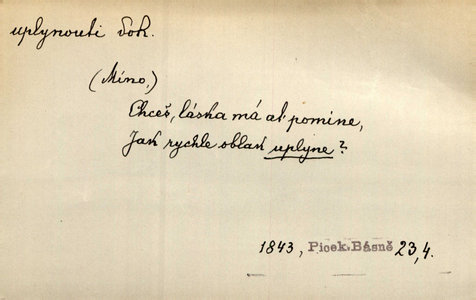 uplynouti dok.
(Míno.)
Chceš, láska má ať pomine,
Jak rychle oblak uplyne?
1843, Picek Básně 23,4.